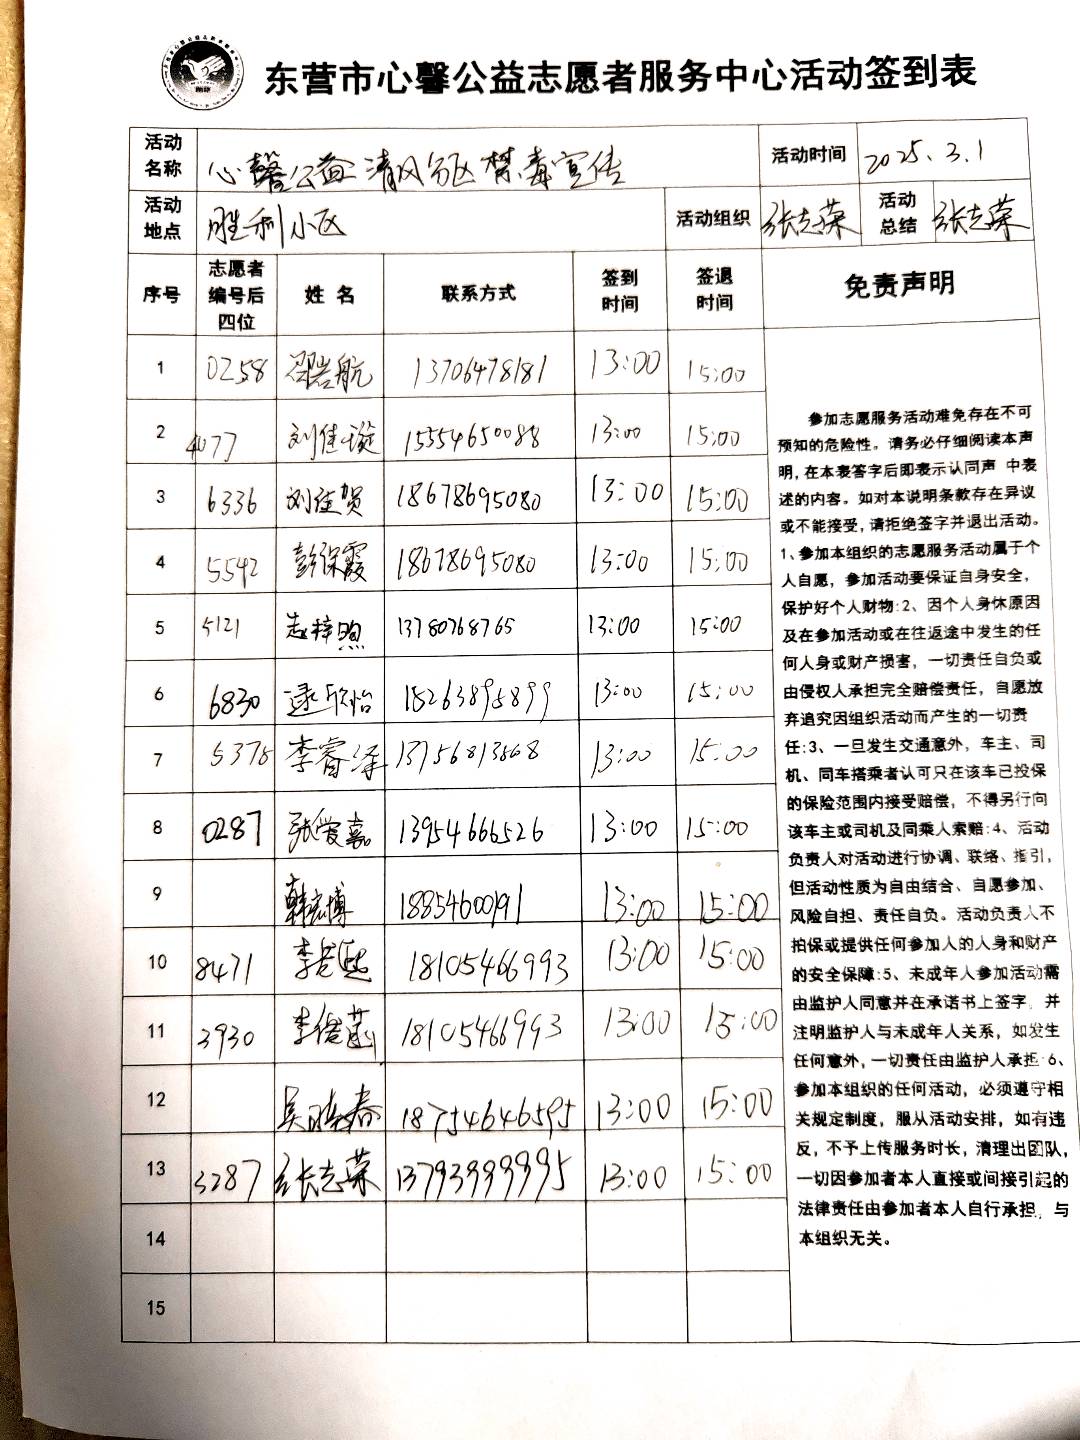 东营市心馨公益志愿者服务中心活动签到表
活动名称 心馨公益清风分区禁毒宣传 活动时间 2025.3.1
活动地点 胜利小区 活动组织 张志荣 活动总结 张志荣
序号 志愿者编号后四位 姓名 联系方式 签到时间 签退时间 免责声明
1 0258 邵岩航 13706478181 13:00 15:00
2 4077 刘佳璇 15554650088 13:00 15:00
3 6336 刘佳贺 18678695080 13:00 15:00
4 5542 彭保霞 18678695080 13:00 15:00
5 5121 赵梓煦 13780768765 13:00 15:00
6 6830 逯欣怡 15263895899 13:00 15:00
7 5375 李睿泽 13756813568 13:00 15:00
8 0287 张爱嘉 13954666526 13:00 15:00
9 韩宏博 18854600191 13:00 15:00
10 8471 18105466993 13:00 15:00
11 3930 18105466993 13:00 15:00
12 吴晓春 18754646595 13:00 15:00
13 3287 张志荣 13793999995 13:00 15:00
14
15
参加志愿服务活动难免存在不可
预知的危险性。请务必仔细阅读本声
明,在本表签字后即表示认同声 中表
述的内容。如对本说明条款存在异议
或不能接受,请拒绝签字并退出活动。
1、参加本组织的志愿服务活动属于个
人自愿，参加活动要保证自身安全，
保护好个人财物:2、因个人身体原因
及在参加活动或在往返途中发生的任
何人身或财产损害，一切责任自负或
由侵权人承担完全赔偿责任，自愿放
弃追究因组织活动而产生的一切责
任:3、一旦发生交通意外，车主、司
机、同车搭乘者认可只在该车已投保
的保险范围内接受赔偿，不得另行向
该车主或司机及同乘人索赔:4、活动
负责人对活动进行协调、联络、指引，
但活动性质为自由结合、自愿参加、
风险自担、责任自负。活动负责人不
担保或提供任何参加人的人身和财产
的安全保障:5、未成年人参加活动需
由监护人同意并在承诺书上签字，并
注明监护人与未成年人关系，如发生
任何意外,一切责任由监护人承担:6、
参加本组织的任何活动，必须遵守相
关规定制度，服从活动安排，如有违
反，不予上传服务时长，清理出团队，
一切因参加者本人直接或间接引起的
法律责任由参加者本人自行承担，与
本组织无关。